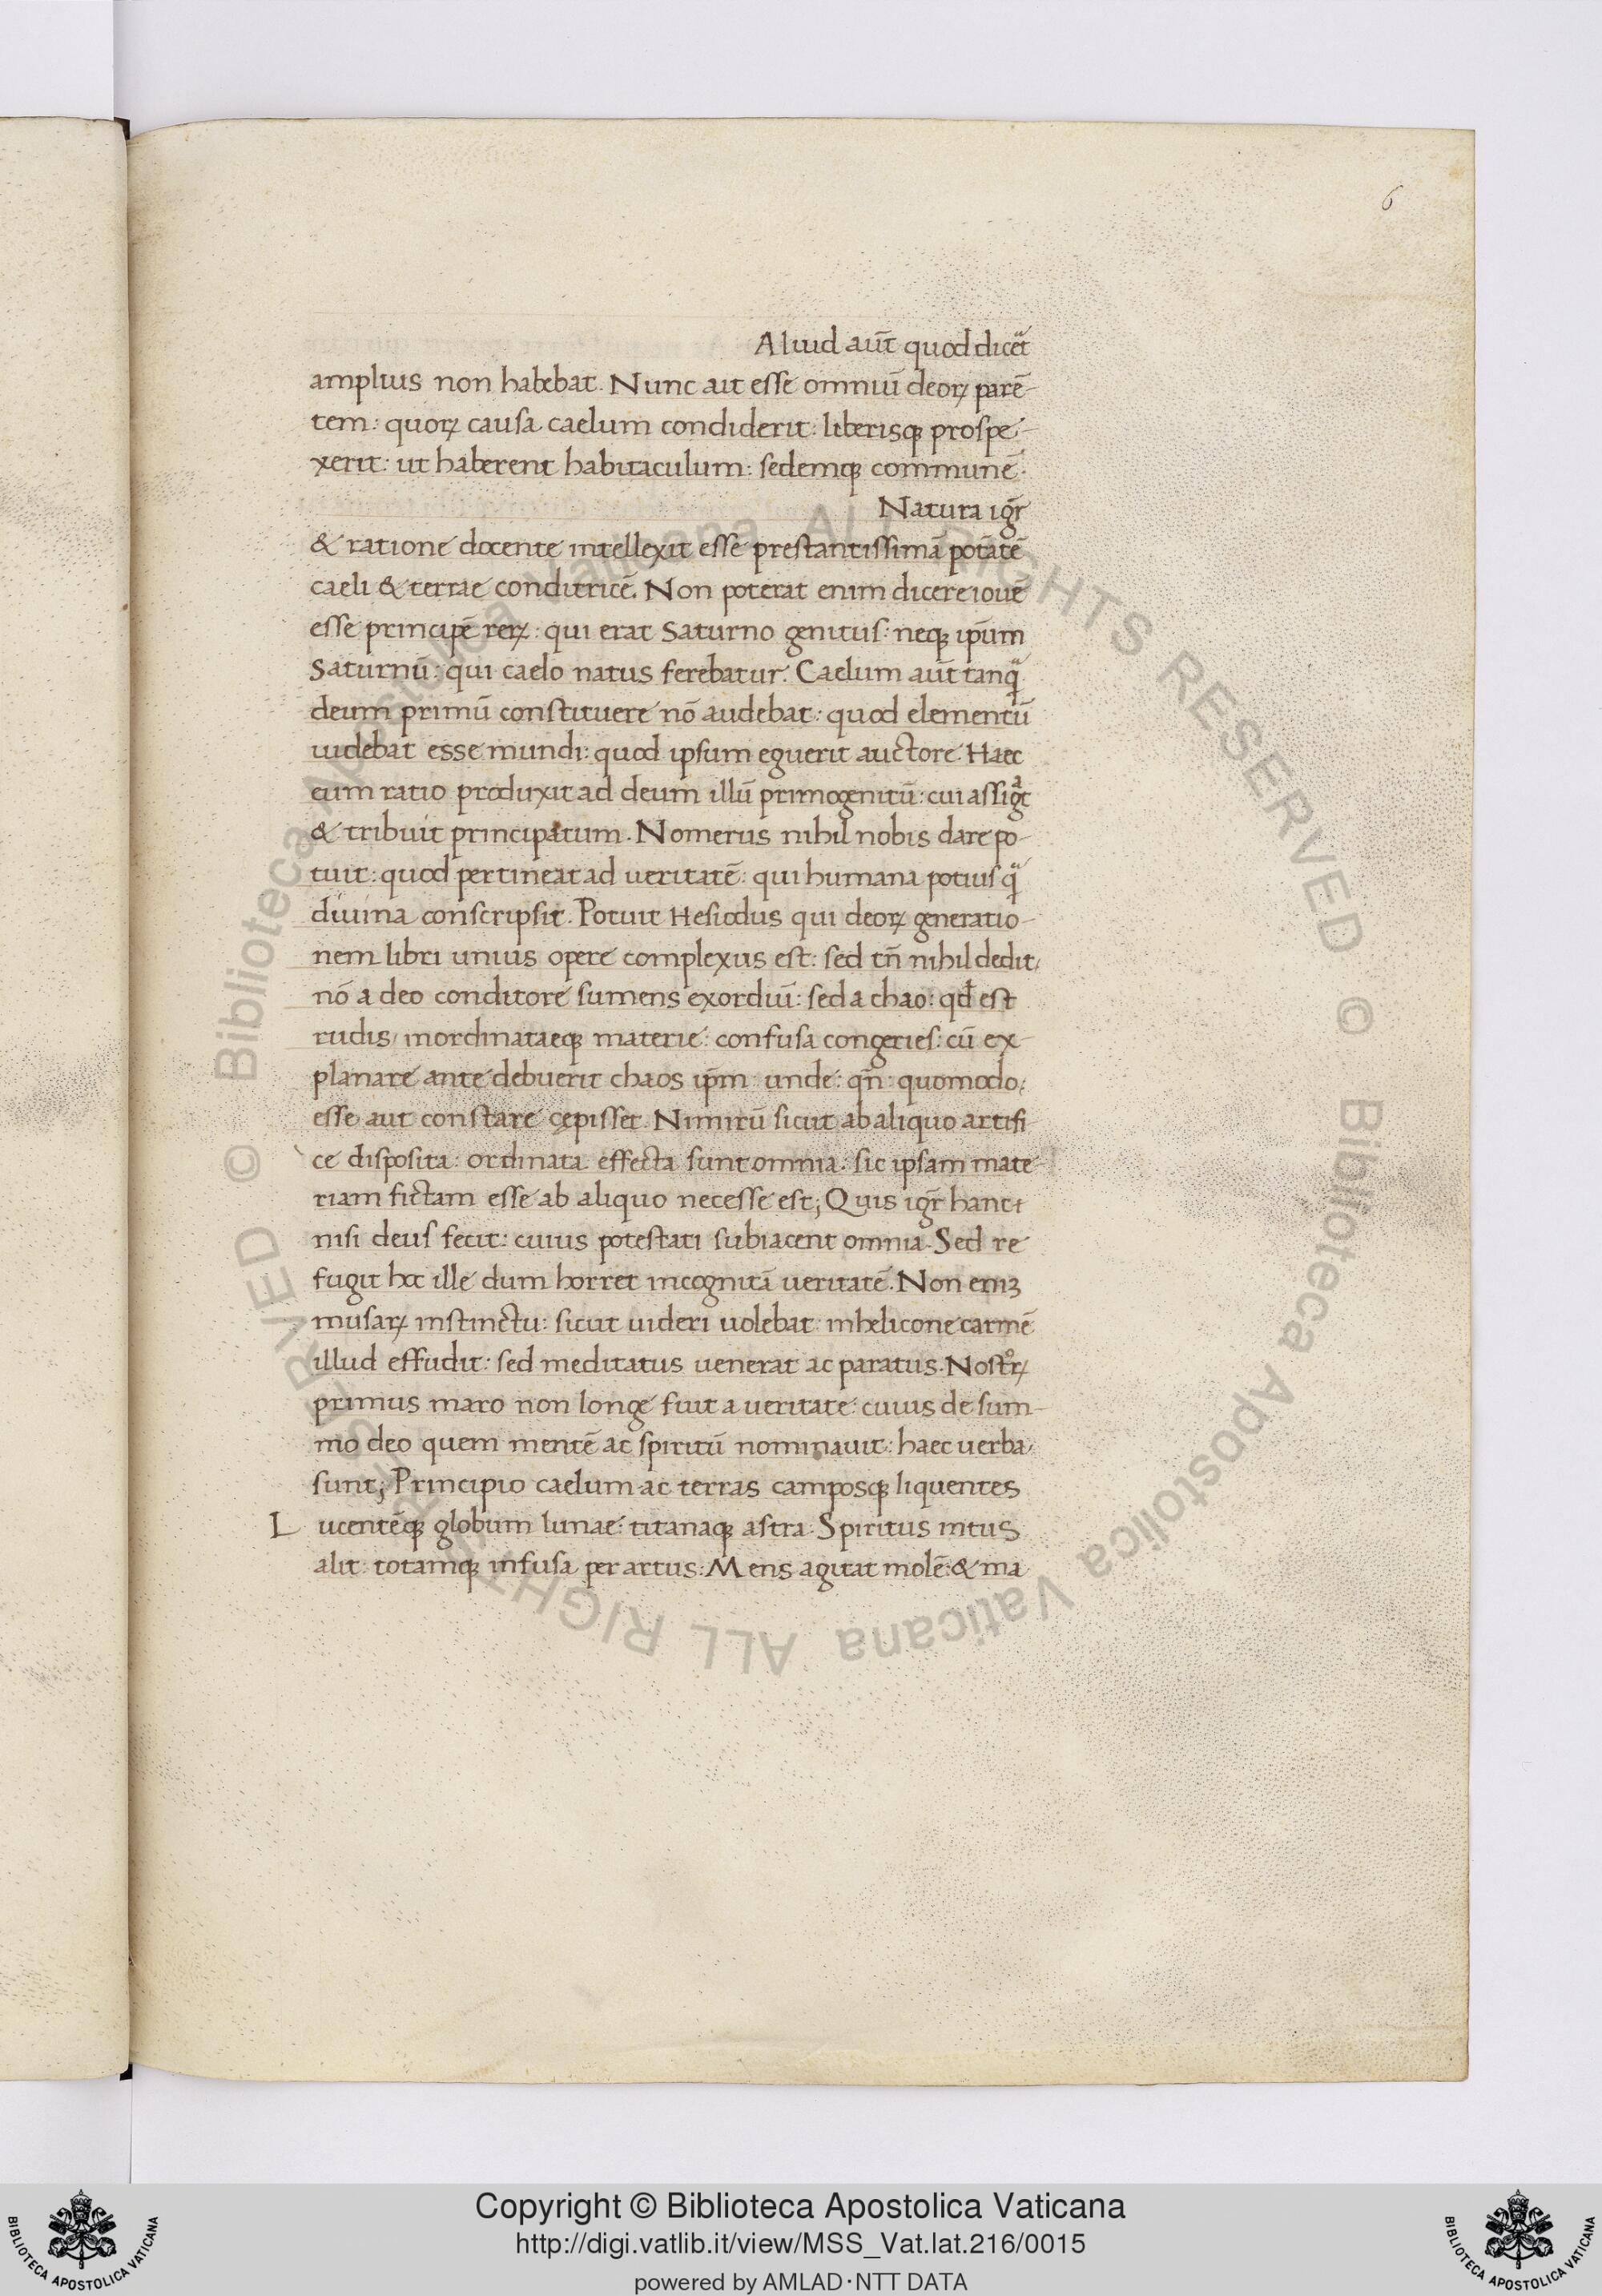 6
Aliud aut̄ quod dicet
amplius non habebat. Nunc ait esse omniū deoꝝ parē-
tem: quoꝝ causa caelum condiderit: liberisqꝫ prospe-
xerit: ut haberent habitaculum: sedemqꝫ communē.
Natura igr̄
& ratione docente intellexit esse prestantissimā potātē
caeli & terrae conditricē. Non poterat enim dicere iouē
esse principē reꝝ: qui erat Saturno genitus: neqꝫ ip̄um
Saturnū: qui caelo natus ferebatur. Caelum aut̄ tanqᷓ
deum primū constituere nō audebat: quod elementū
uidebat esse mundi: quod ipsum eguerit auctore. Haec
eum ratio produxit ad deum illū primogenitū: cui assigᷓt
& tribuit principatum. Nomerus nihil nobis dare po-
tuit: quod pertineat ad veritatē: qui humana potius qᷓ
divina conscripsit. Potuit Hesiodus qui deoꝝ generatio-
nem libri unius opere complexus est: sed tn̄ nihil dedit/
nō a deo conditore sumens exordiū: sed a chao: qđ est
rudis/ inordinataeqꝫ materie: confusa congeries: cū ex-
planare ante debuerit chaos ip̄m: unde: qn̄: quomodo:
esse aut constare cępisset. Nimirū sicut ab aliquo artifi
ce disposita: ordinata effecta sunt omnia. sic ipsam mate-
riam fictam esse ab aliquo necesse est; Quis igr̄ hanc
nisi deus fecit: cuius potestati subiacent omnia. Sed re
fugit hoc ille dum horret incognitā veritatē. Non enīꝫ
musaꝝ instinctu: sicut uideri uolebat: inhelicone carmē
illud effudit: sed meditatus venerat ac paratus. Nostᷣoꝝ
primus maro non longe fuit a veritate: cuius de sum-
mo deo quem mentē ac spiritū nominavit: haec verba/
sunt; Principio caelum ac terras camposqꝫ liquentes
Lucentēqꝫ globum lunae: titanaqꝫ astra: Spiritus intus
alit: totamqꝫ infusa per artus: Mens agitat molē: & ma
© Biblioteca Apostolica Vaticana ALL RIGHTS RESERVED © Biblioteca Apostolica Vaticana ALL RIGHTS RESERVED
BIBLIOTECA APOSTOLICA VATICANA
Copyright © Biblioteca Apostolica Vaticana
http://digi.vatlib.it/view/MSS_Vat.lat.216/0015
powered by AMLAD·NTT DATA
BIBLIOTECA APOSTOLICA VATICANA